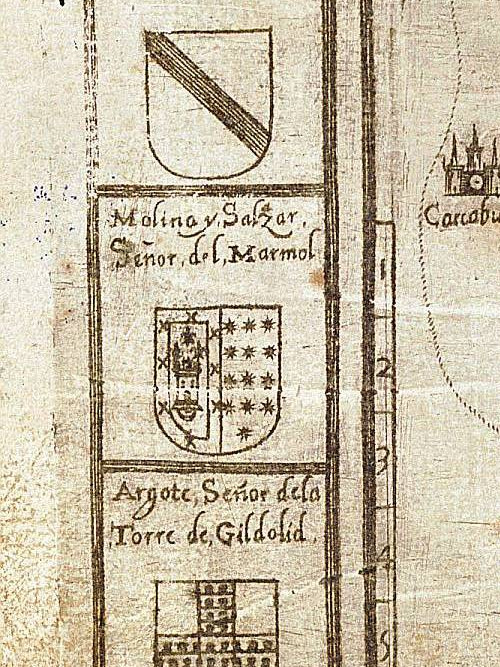 Molina y, Salzar,
Señor, del, Marmol
Argote, Señor dela
Torre de, Gildolid.
1
2
3
4
5